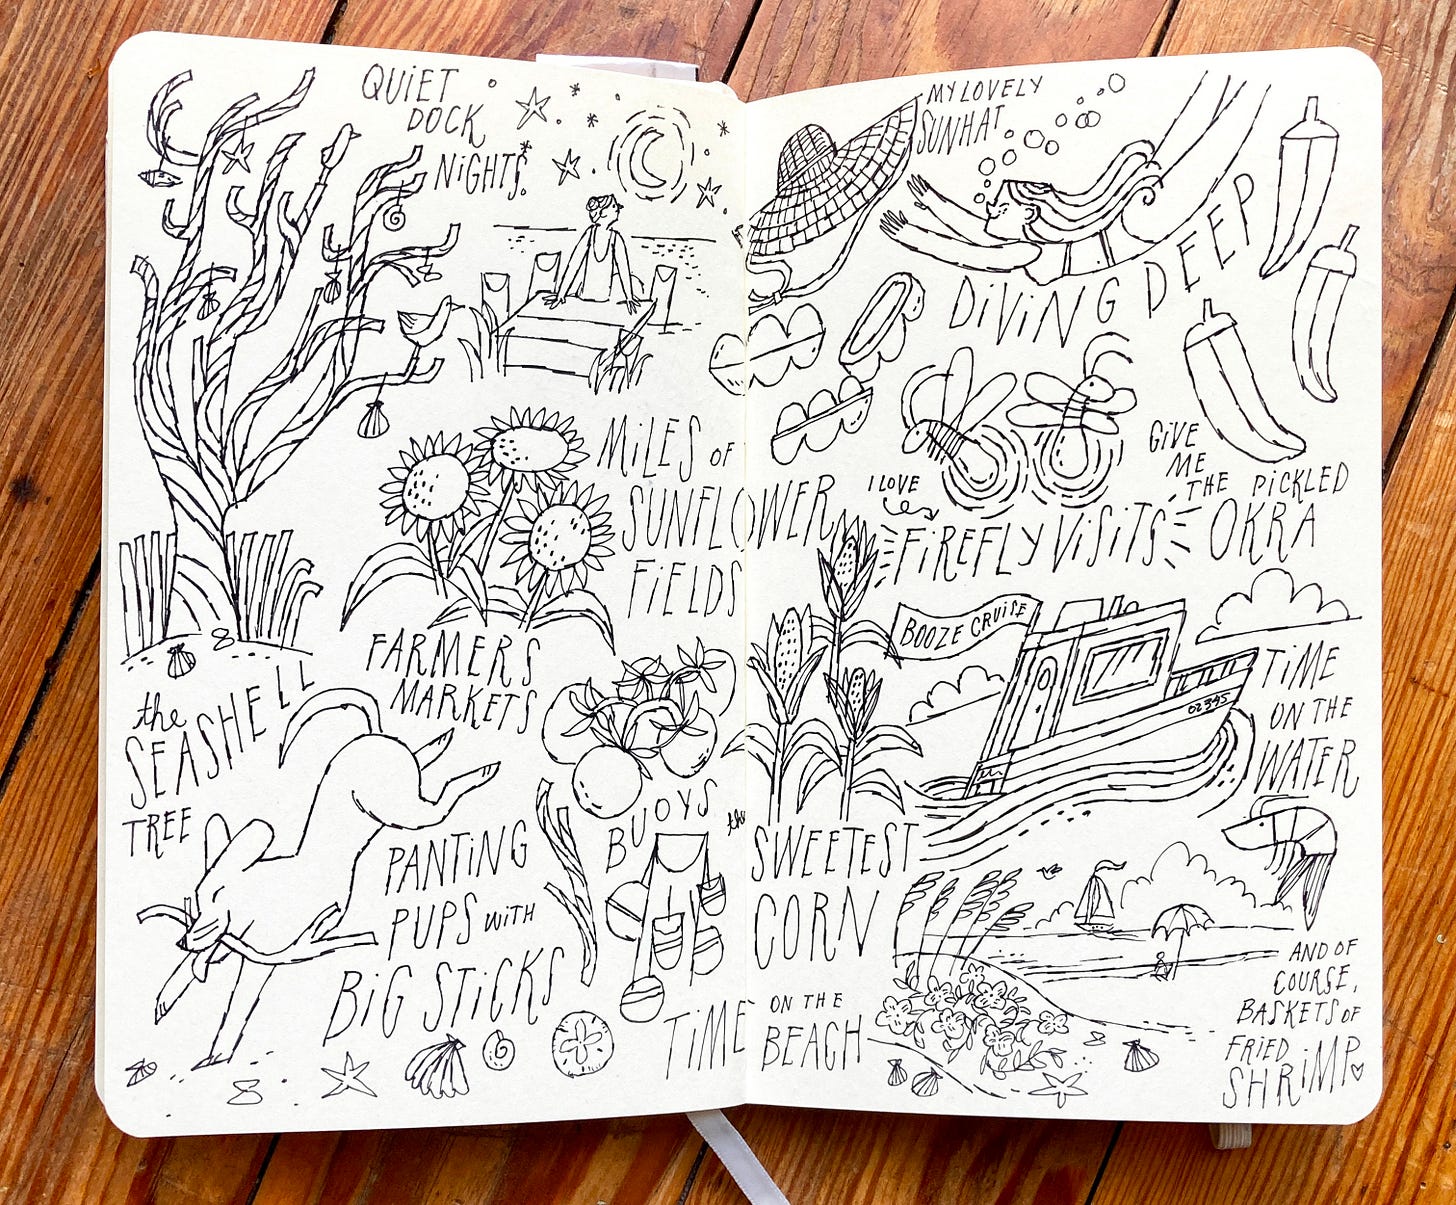 QUIET
DOCK
NIGHTS.
MILES OF
SUNFLOWER
FIELDS
FARMERS
MARKETS
the
SEASHELL
TREE
BUOYS
PANTING
PUPS WITH
BIG STICKS
MY LOVELY
SUNHAT
DIVING DEEP
I LOVE
FIREFLY VISITS
GIVE
ME
THE PICKLED
OKRA
BOOZE CRUISE
02395
TIME
ON THE
WATER
the
SWEETEST
CORN
TIME ON THE
BEACH
AND OF
COURSE,
BASKETS OF
FRIED
SHRIMP